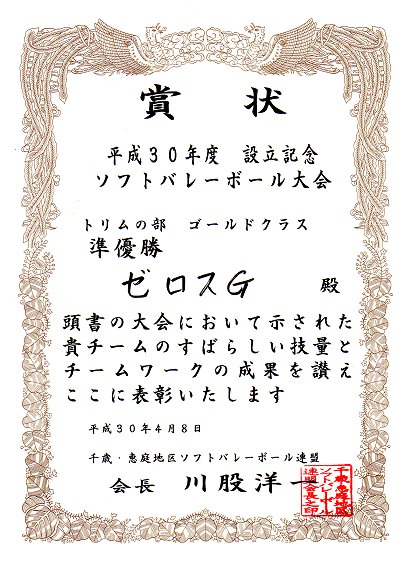 賞状
平成３０年度　設立記念
ソフトバレーボール大会
トリムの部　ゴールドクラス
準優勝
ゼロスG　殿
頭書の大会において示された
貴チームのすばらしい技量と
チームワークの成果を讃え
ここに表彰いたします
平成３０年４月８日
千歳・恵庭地区ソフトバレーボール連盟
会長　川股洋一
千歳・恵庭地区
ソフトバレーボール
連盟会長之印